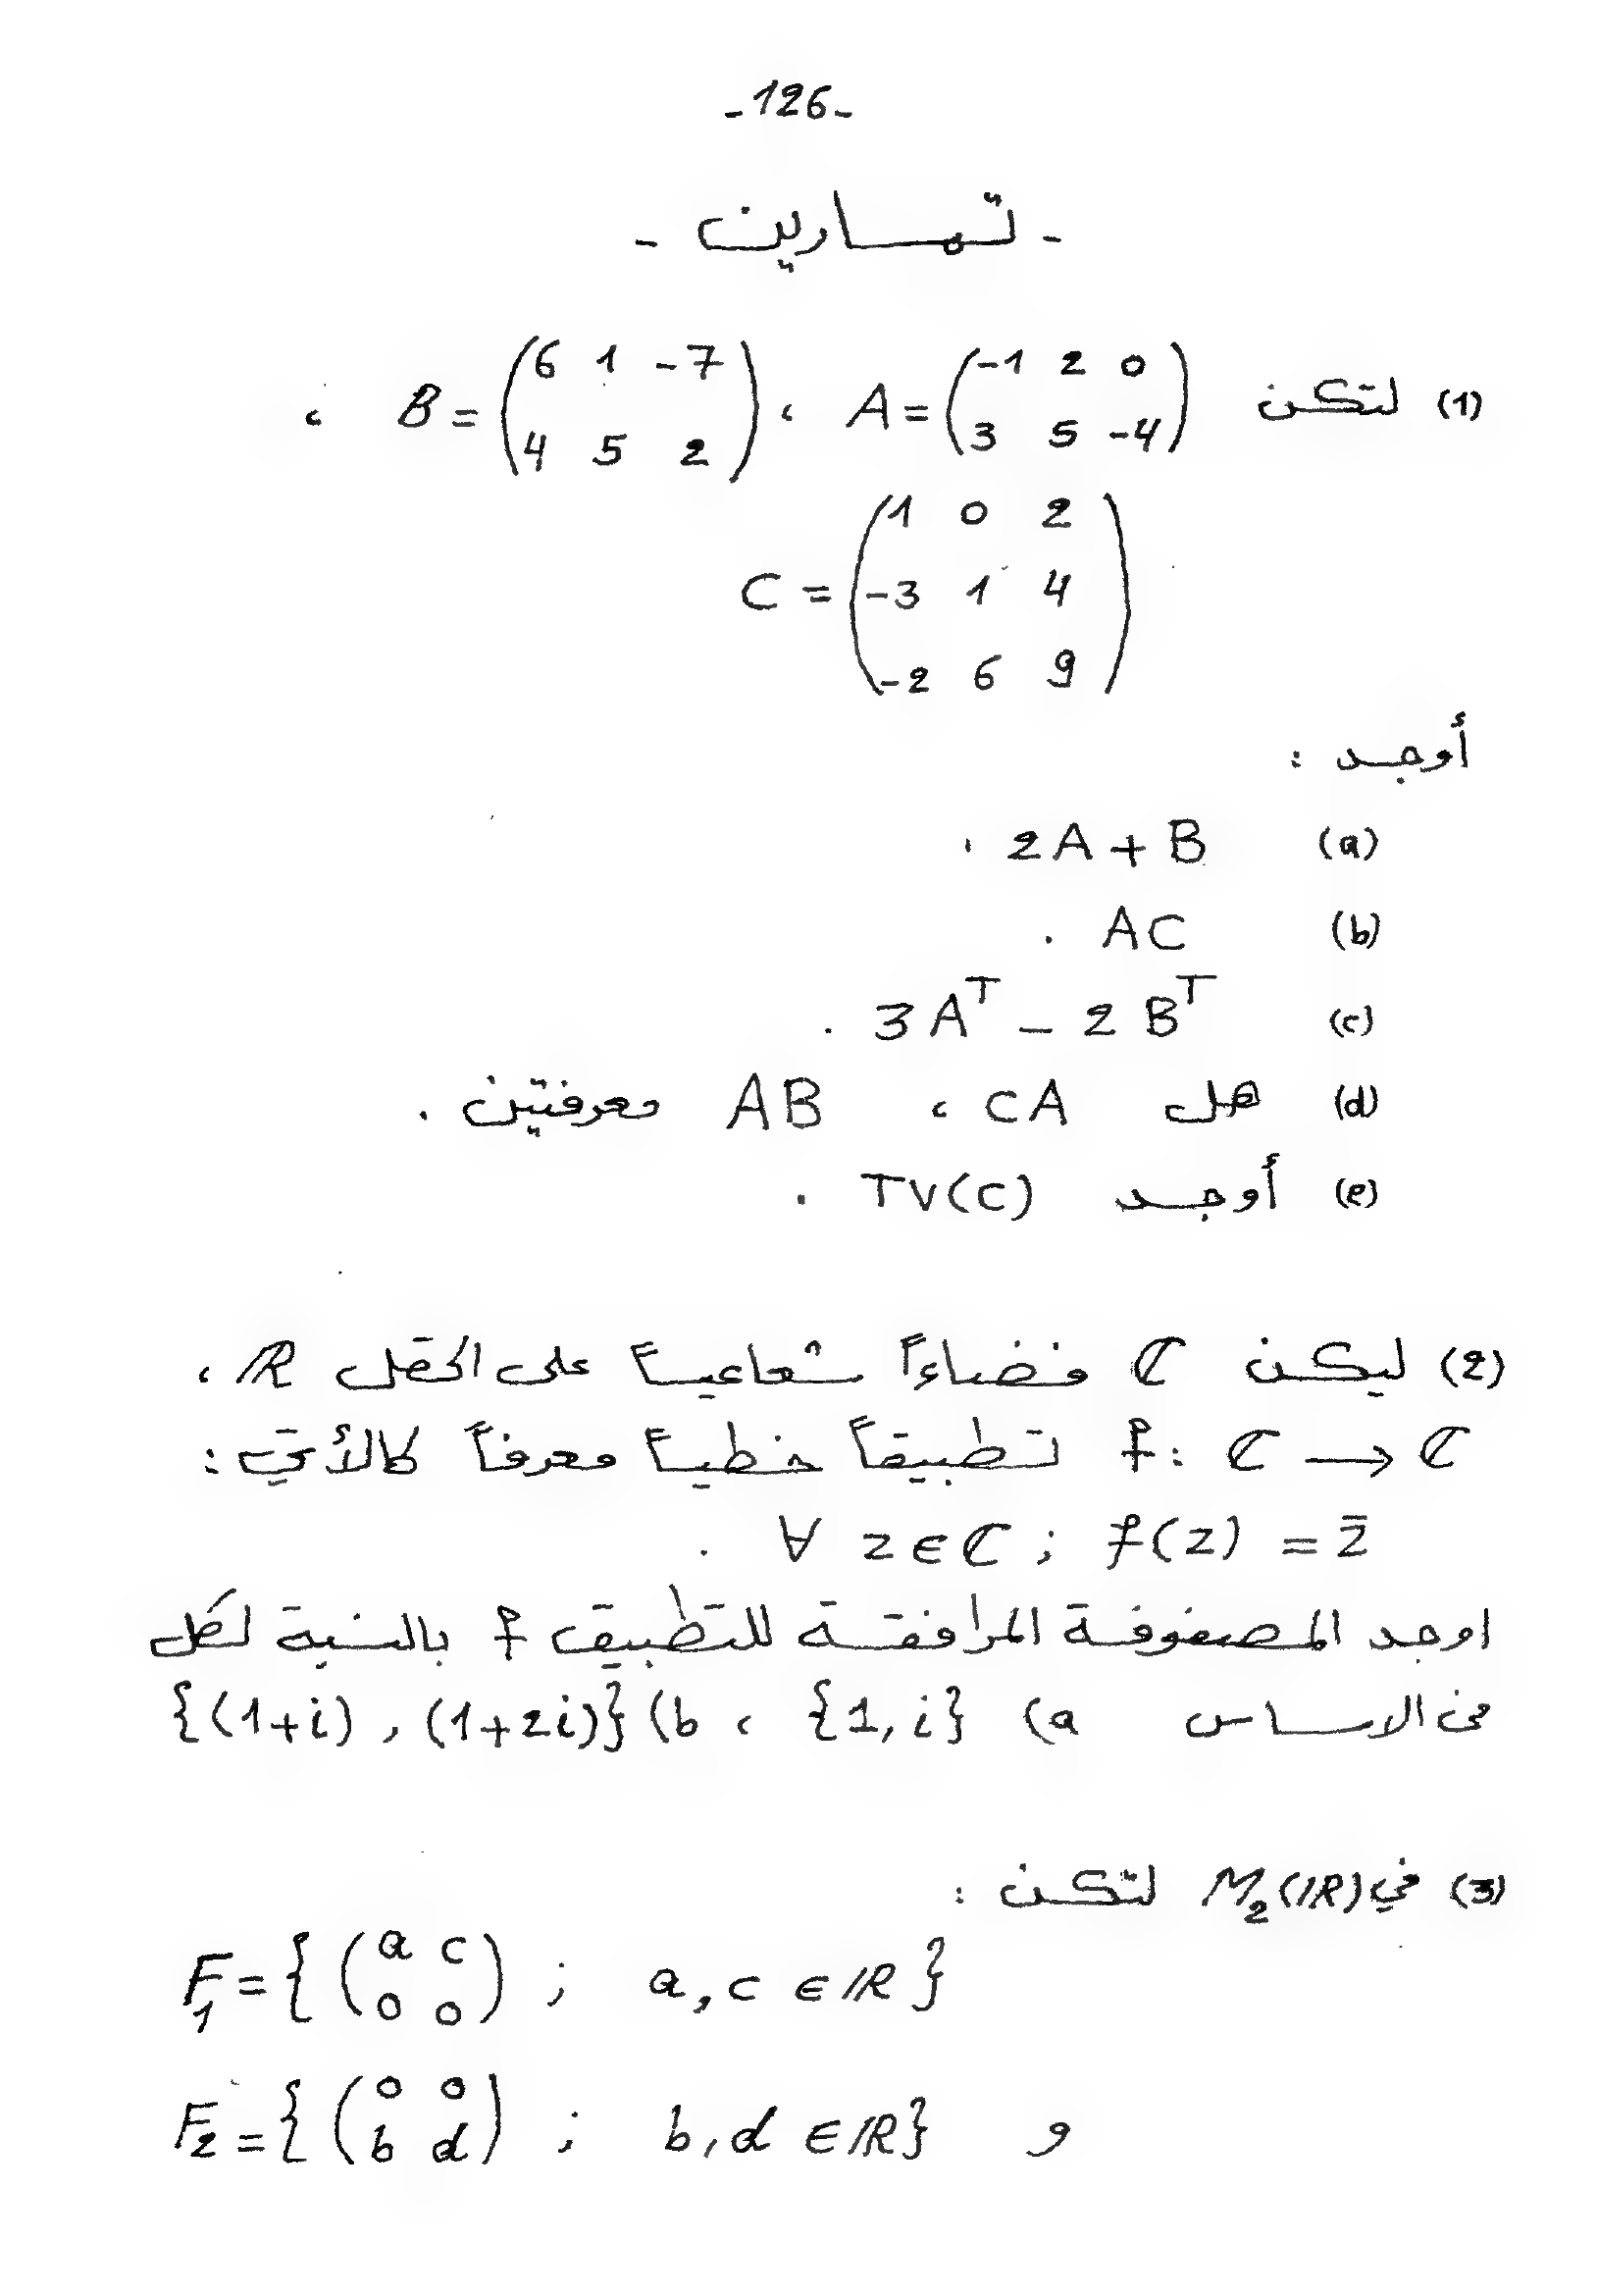 -126-
- تمارين -
(1) لتكن A = (-1 2 0 / 3 5 -4) ، B = (6 1 -7 / 4 5 2) ،
C = (1 0 2 / -3 1 4 / -2 6 9)
أوجد :
(a) 2A + B .
(b) AC .
(c) 3A^T - 2B^T .
(d) هل CA ، AB معرفتين .
(e) أوجد Tr(C) .
(2) ليكن ℂ فضاءاً شعاعياً على الحقل ℝ ،
f : ℂ → ℂ تطبيقاً خطياً معرفاً كالأتي :
∀ z ∈ ℂ ; f(z) = z̄ .
اوجد المصفوفة المرافقة للتطبيق f بالنسبة لكل
من الاساس a) {1, i} ، b) {(1+i) , (1+2i)}
(3) في M₂(ℝ) لتكن :
F₁ = { (a c / 0 0) ; a, c ∈ ℝ }
و F₂ = { (0 0 / b d) ; b, d ∈ ℝ }